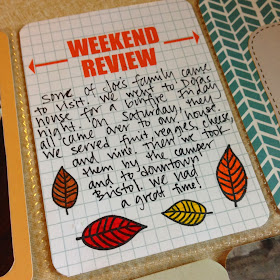 WEEKEND
REVIEW
Some of Joe's family came
to visit. We went to Doras
house for a bonfire Friday
night. On Saturday, they
all came over to our house.
We served fruit, veggies, cheese,
and wine. Then we took
them by the camper
and to downtown
Bristol. We had
a great time!